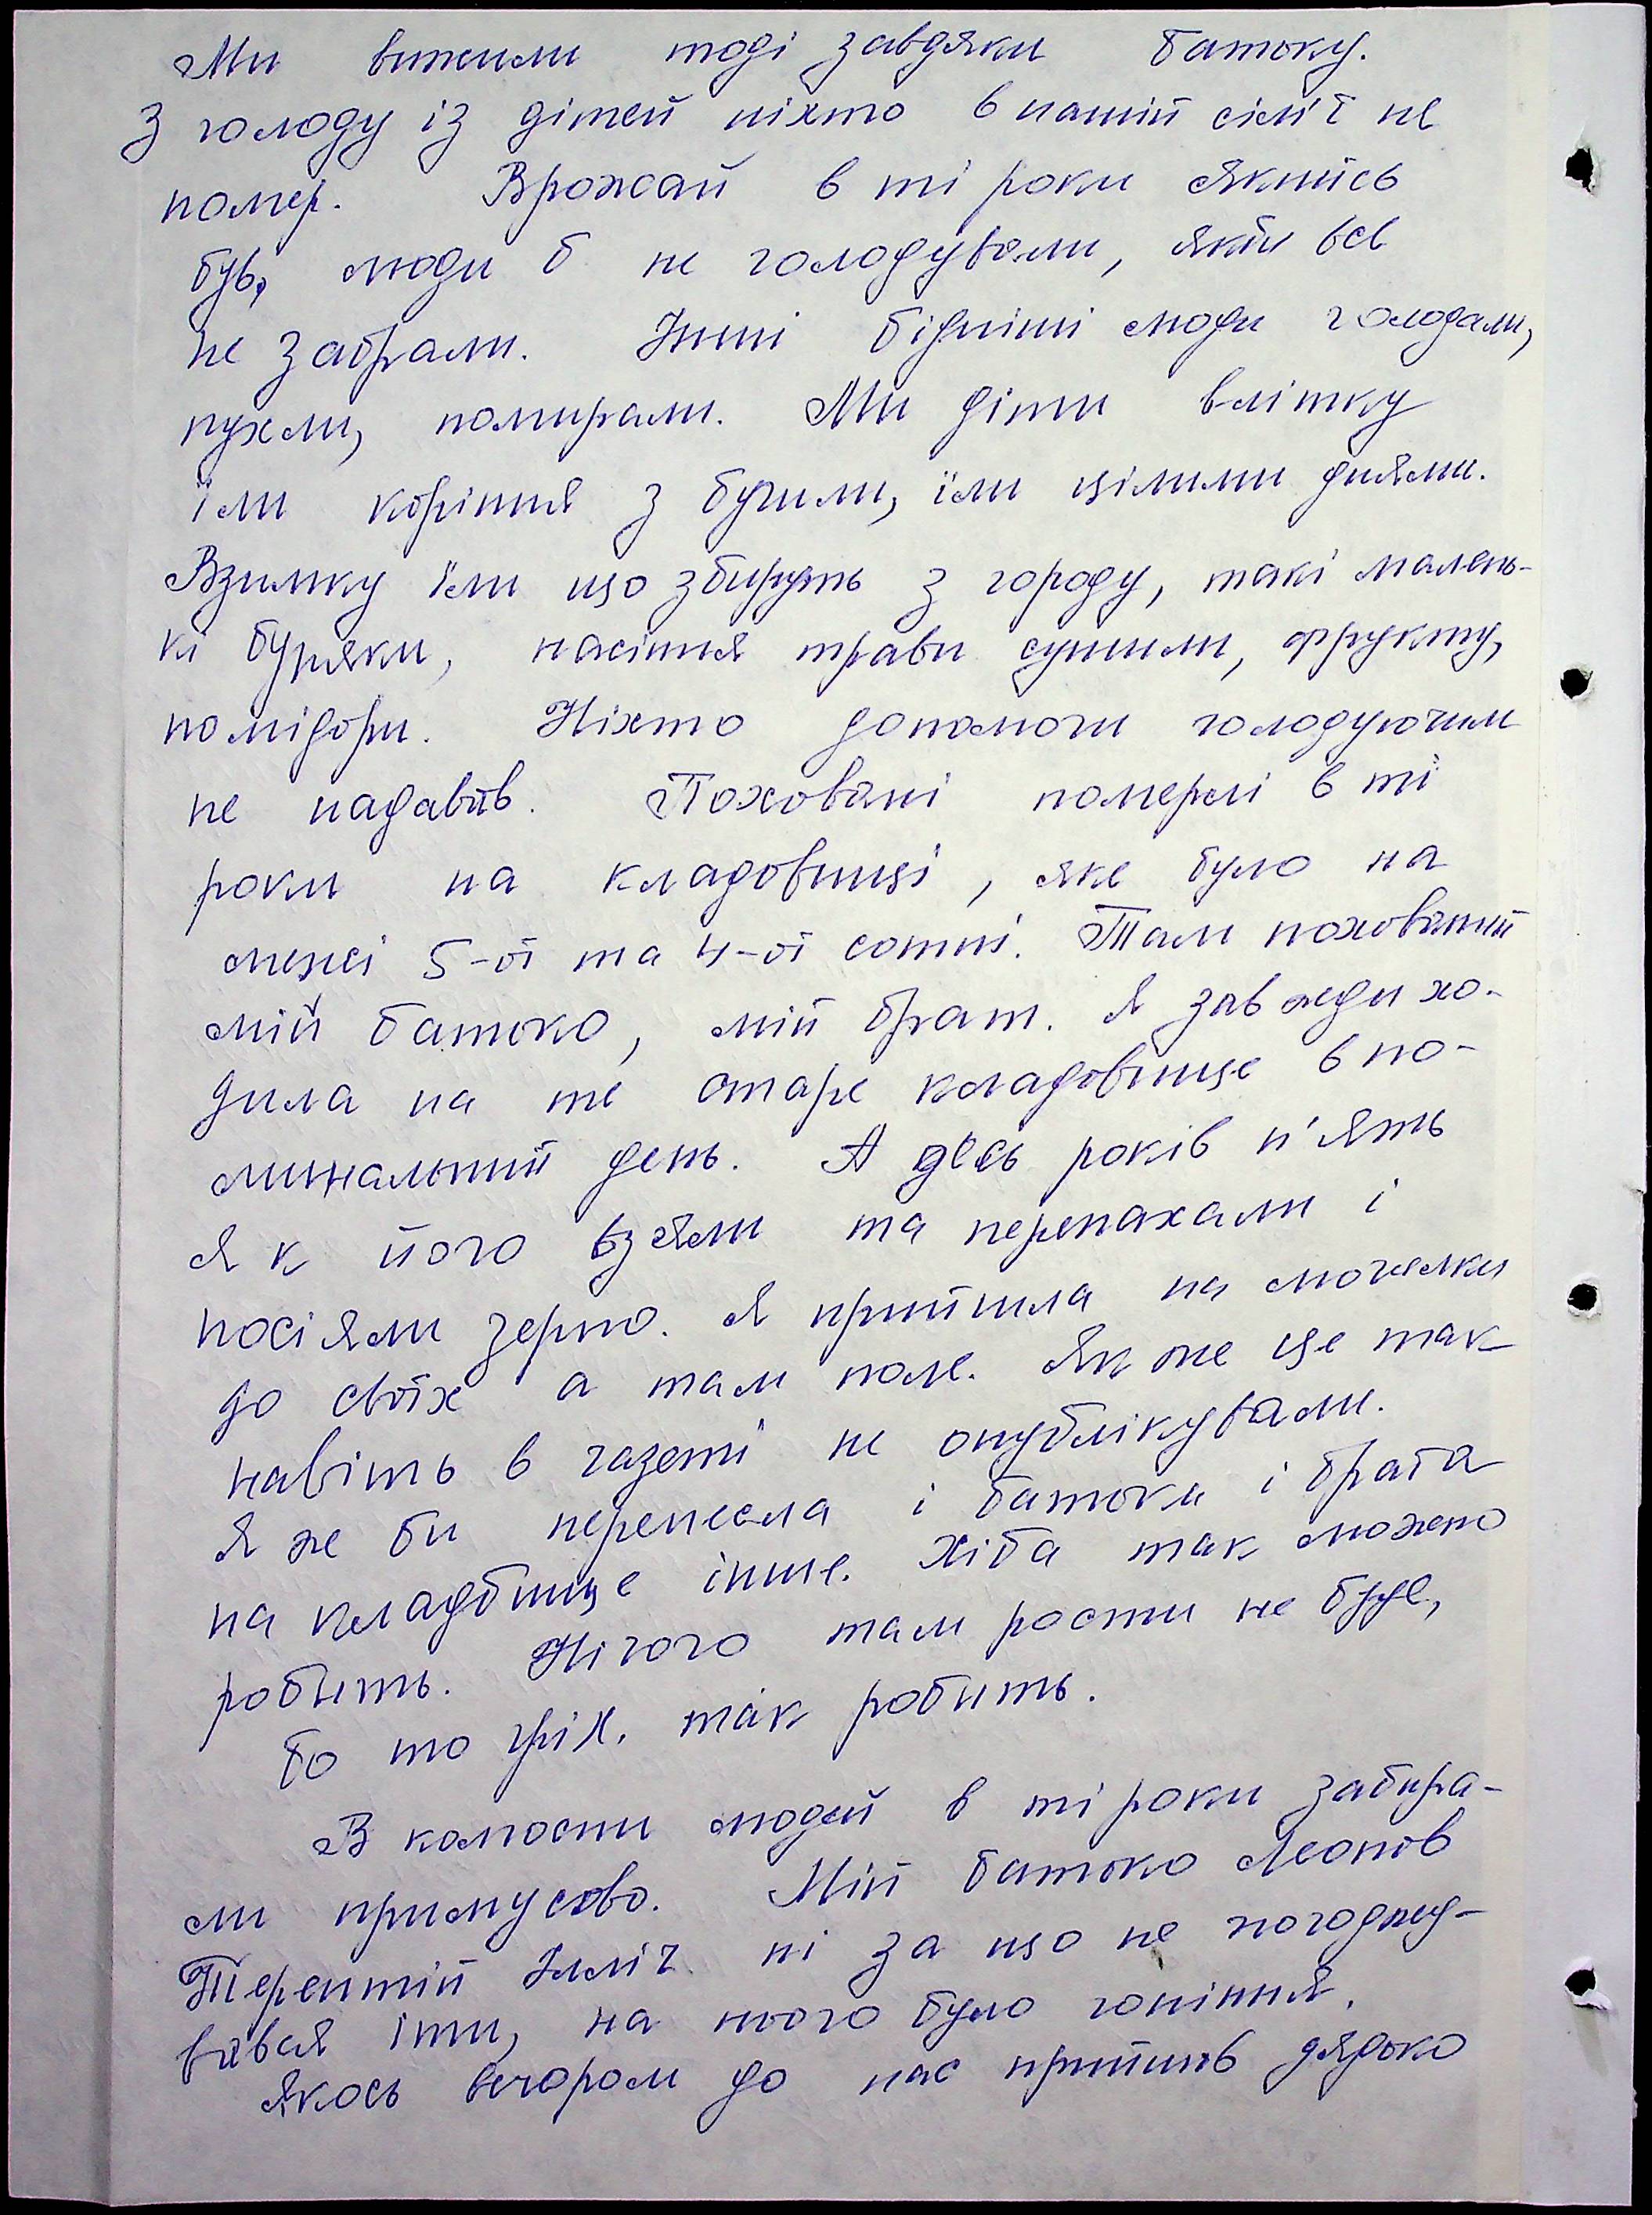 Ми вижили тоді завдяки батьку.
З голоду із дітей ніхто в нашій сім'ї не
помер. Врожай в ті роки якийсь
був, люди б не голодували, якби все
не забрали. Інші бідніші люди голодали,
пухли, помирали. Ми діти влітку
їли коріння з бугили, їли цілими днями.
Взимку їли що збируть з городу, такі малень-
кі буряки, насіння трави сушили, фрукту,
помідори. Ніхто допомоги голодуючим
не надавав. Поховані померлі в ті
роки на кладовищі, яке було на
межі 5-ої та 4-ої сотні. Там похований
мій батько, мій брат. Я завжди хо-
дила на те старе кладовище в по-
минальний день. А десь років п'ять
як його взяли та перепахали і
посіяли зерно. Я прийшла на могилки
до своїх а там поле. Як же це так
навіть в газеті не опублікували.
Я же би перенесла і батька і брата
на кладбище інше. Хіба так можно
робить. Нічого там рости не буде,
бо то гріх так робить.
В колгоспи людей в ті роки забира-
ли примусово. Мій батько Леонов
Терентій Ілліч ні за що не погоджу-
вався іти, на нього було гоніння.
Якось вечором до нас прийшов дядько